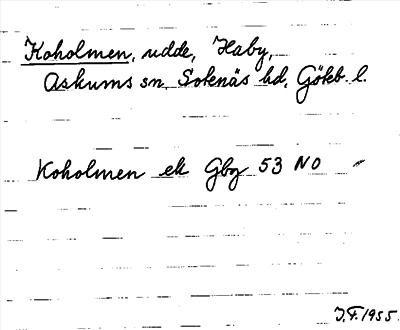 Koholmen, udde, Haby,
Askums sn, Sotenäs hd, Göteb. l.
Koholmen ek Gbg 53 NO
J.F. 1955.